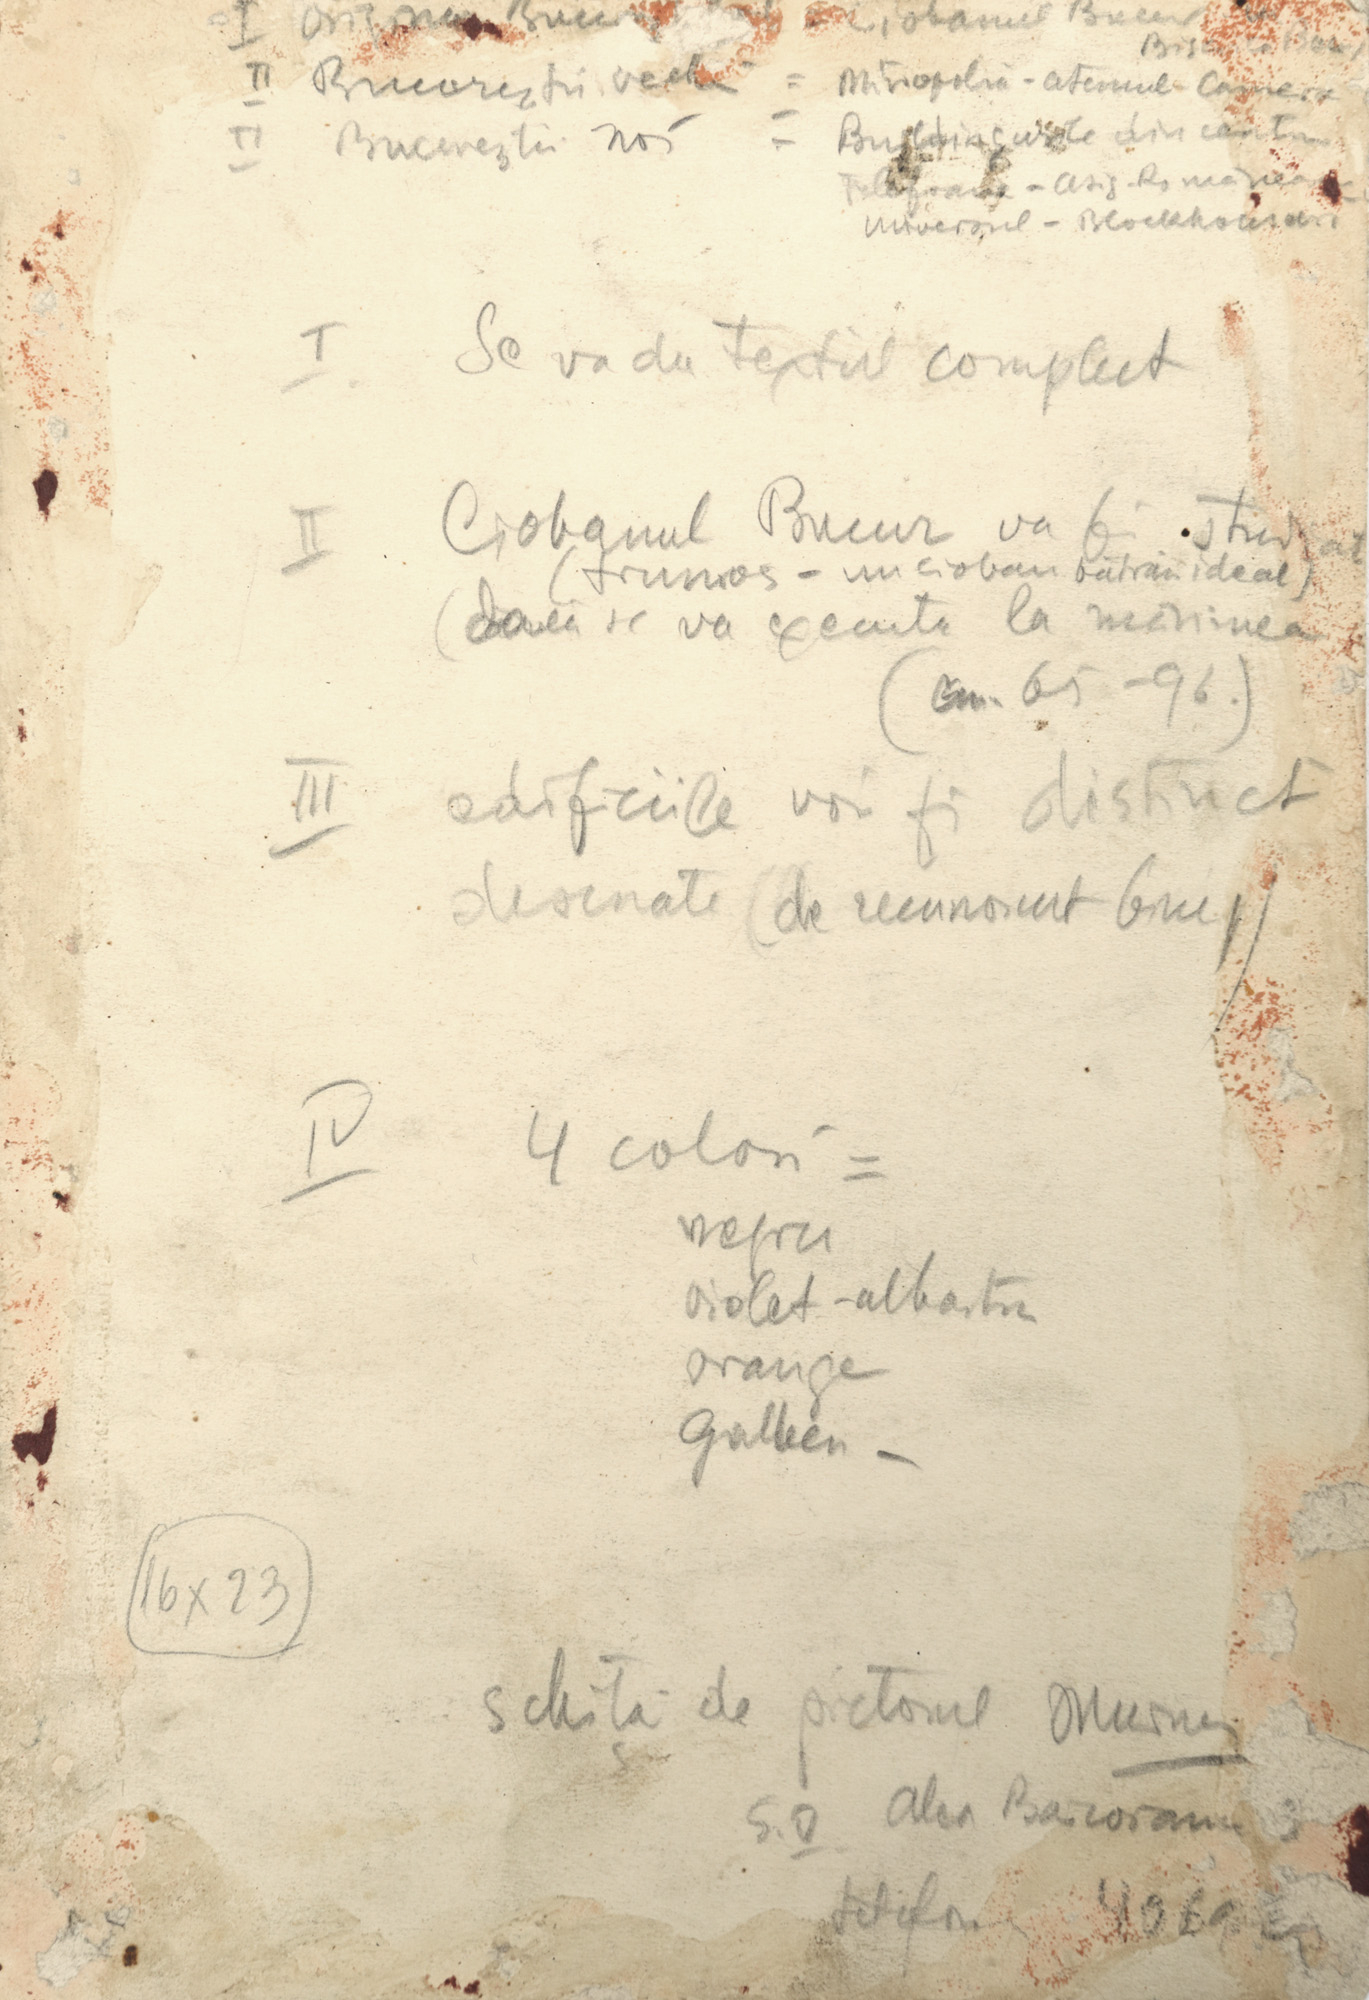 I Originea Bucureștilor = Ciobanul Bucur
II Bucureștii vechi = Mitropolia - Ateneul - Camera
III Bucureștii noi = Buildingurile din centru
Telefoane - Asig. Românească
Universul - Blockhausuri
I Se va da textul complect
II Ciobanul Bucur va fi studiat
(frumos - un cioban bătrân ideal)
(daca se va executa la mărimea
(cm. 65 - 96.)
III edificiile vor fi distinct
desenate (de recunoscut bine)
IV 4 colori =
negru
violet - albastru
orange
Galben -
16 x 23
schiță de pictorul Murnu
Alea
telefon